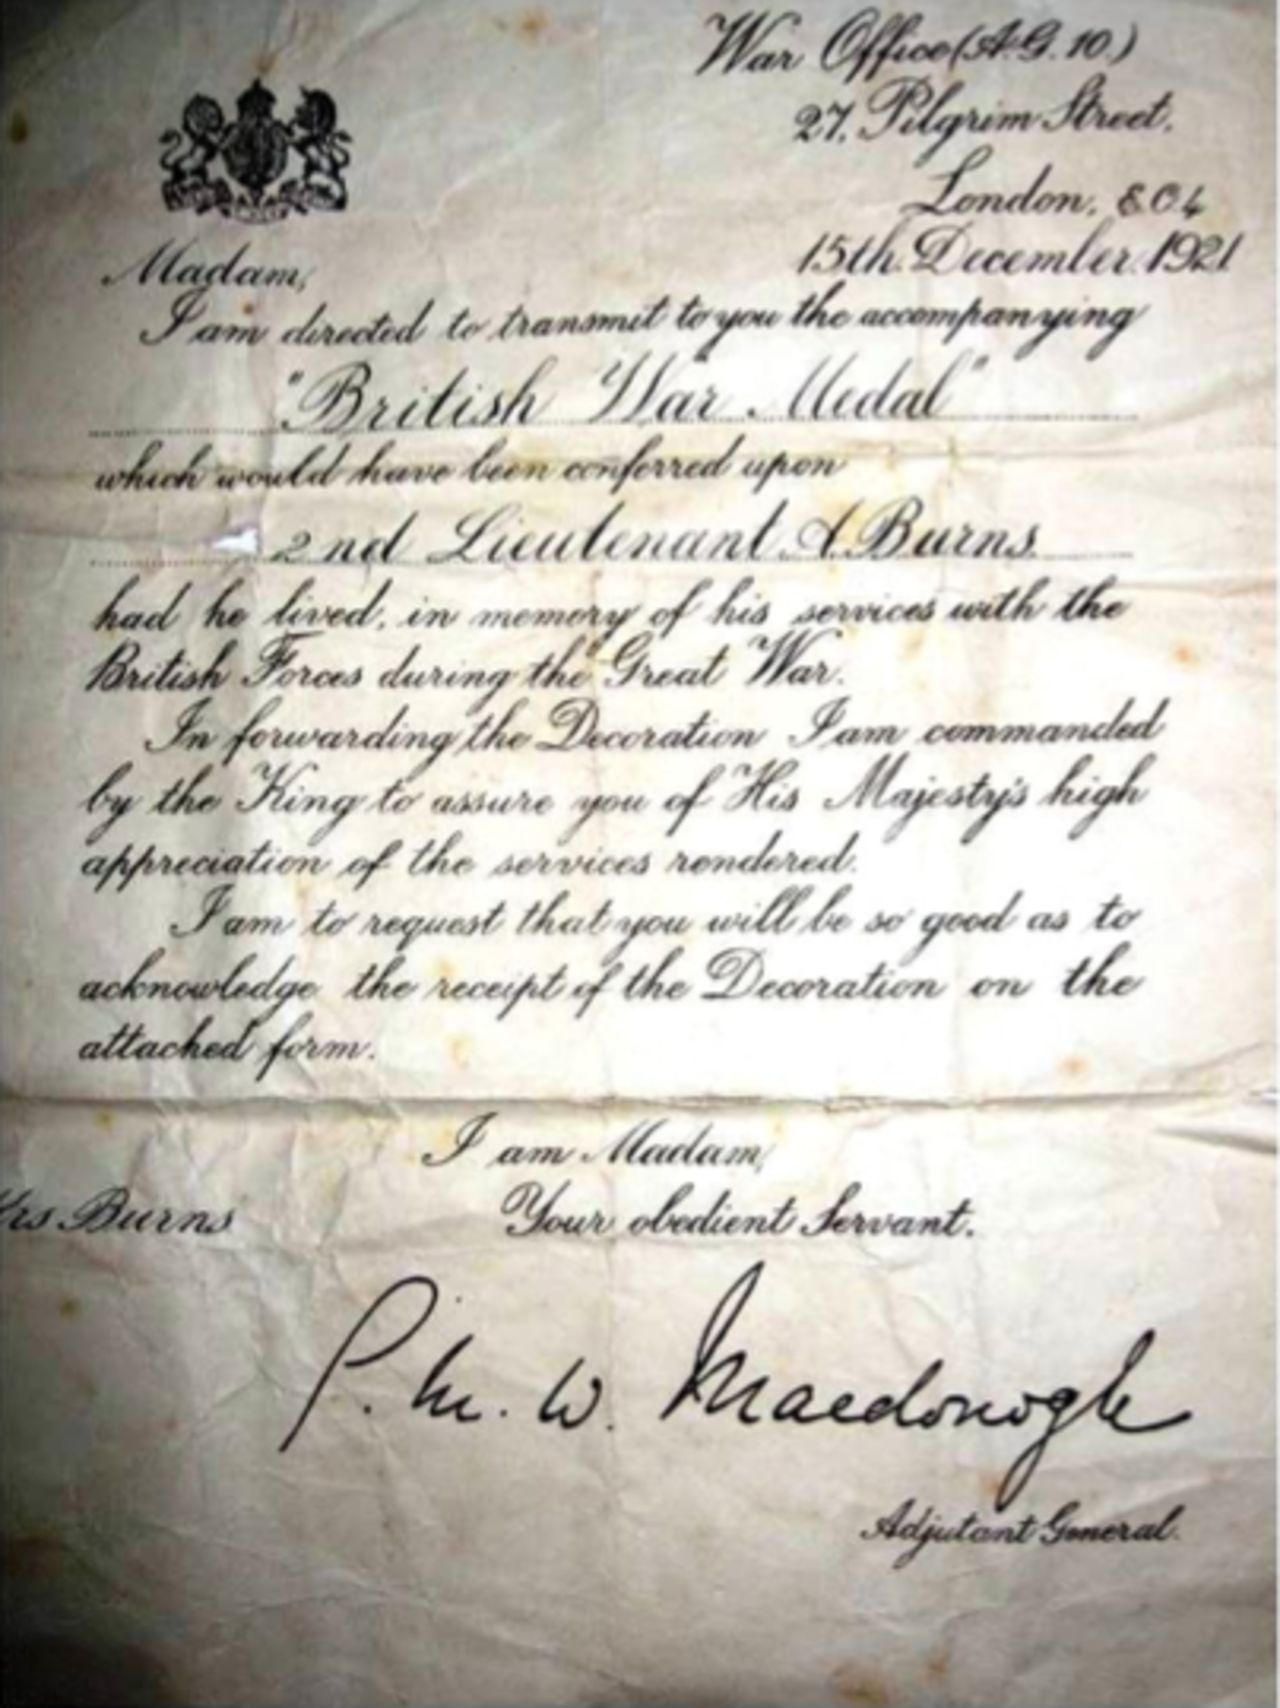 War Office (A.G. 10.)
27, Pilgrim Street.
London, E C 4
15th December 1921
Madam,
I am directed to transmit to you the accompanying
"British War Medal"
which would have been conferred upon
2nd Lieutenant A. Burns.
had he lived, in memory of his services with the
British Forces during the Great War.
In forwarding the Decoration I am commanded
by the King to assure you of His Majesty's high
appreciation of the services rendered.
I am to request that you will be so good as to
acknowledge the receipt of the Decoration on the
attached form.
I am Madam,
rs Burns
Your obedient Servant.
G. M. W. Macdonogh
Adjutant General.